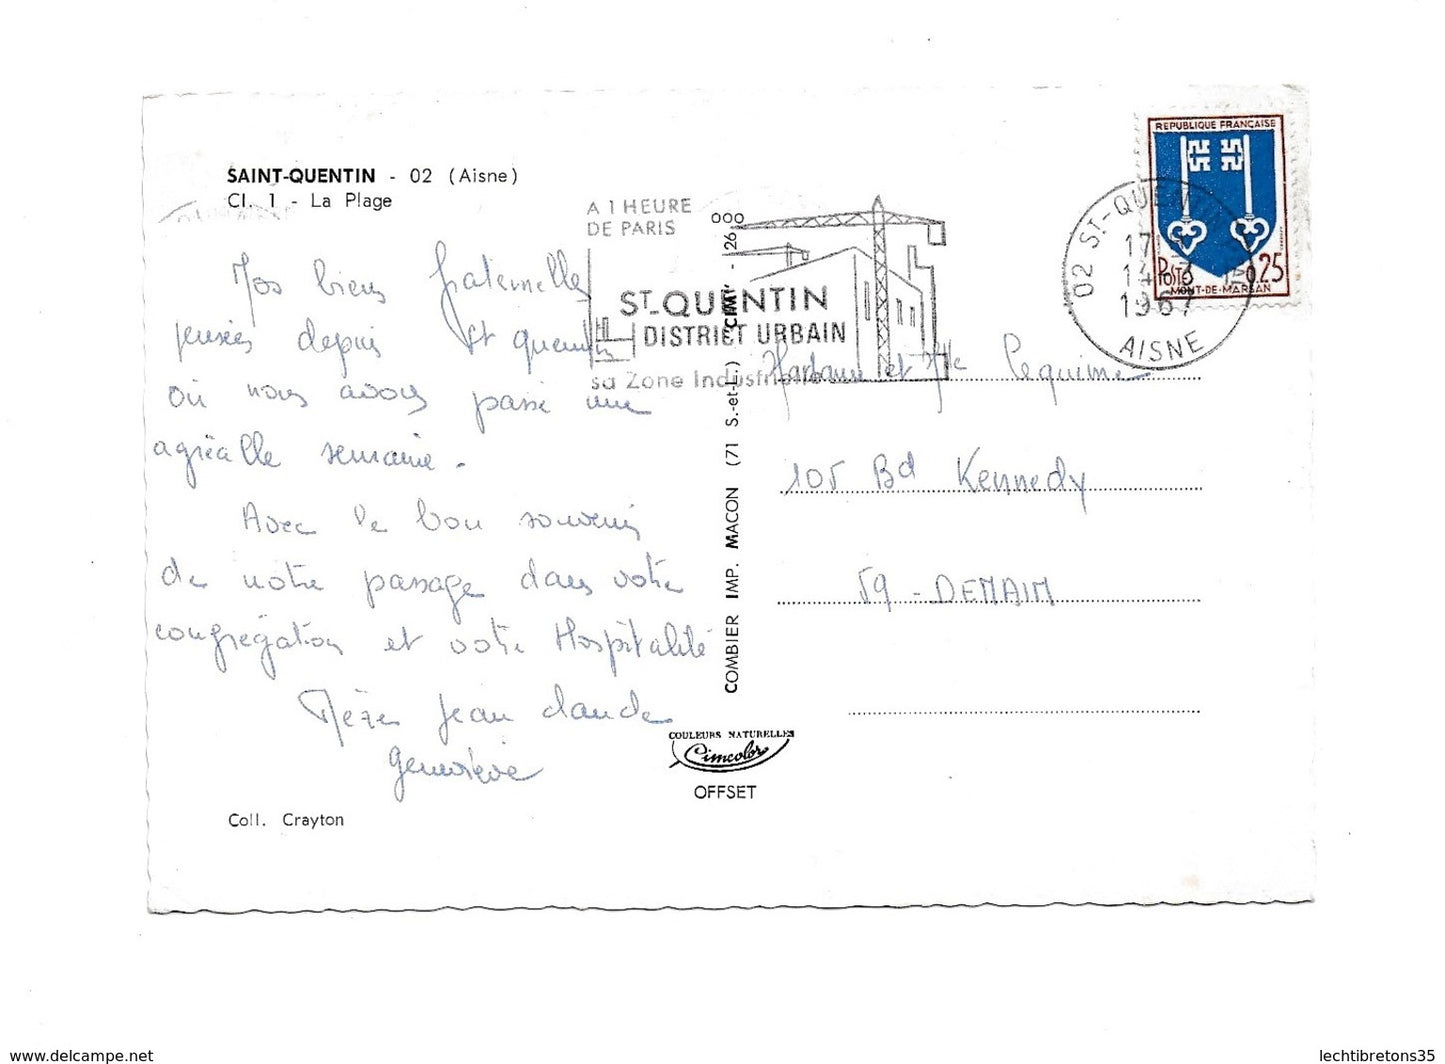 SAINT-QUENTIN - 02 (Aisne)
Cl. 1 - La Plage
A 1 HEURE
DE PARIS
ST-QUENTIN
DISTRICT URBAIN
sa Zone Industrielle
REPUBLIQUE FRANÇAISE
POSTES 0,25
MONT-DE-MARSAN
02 ST-QUENTIN
17H
14-3
1967
AISNE
Nos biens fraternelles
pensées depuis St quentin
où nous avons passé une
agréable semaine.
Avec le bon souvenir
de notre passage dans votre
congrégation et votre Hospitalité
Jean claude
geneviève
et Mlle
105 Bd Kennedy
59 - DENAIN
COMBIER IMP. MACON (71 S.-et-L.) CIM - 26.000
COULEURS NATURELLES
Cimcolor
OFFSET
Coll. Crayton
www.delcampe.net
lechtibretons35